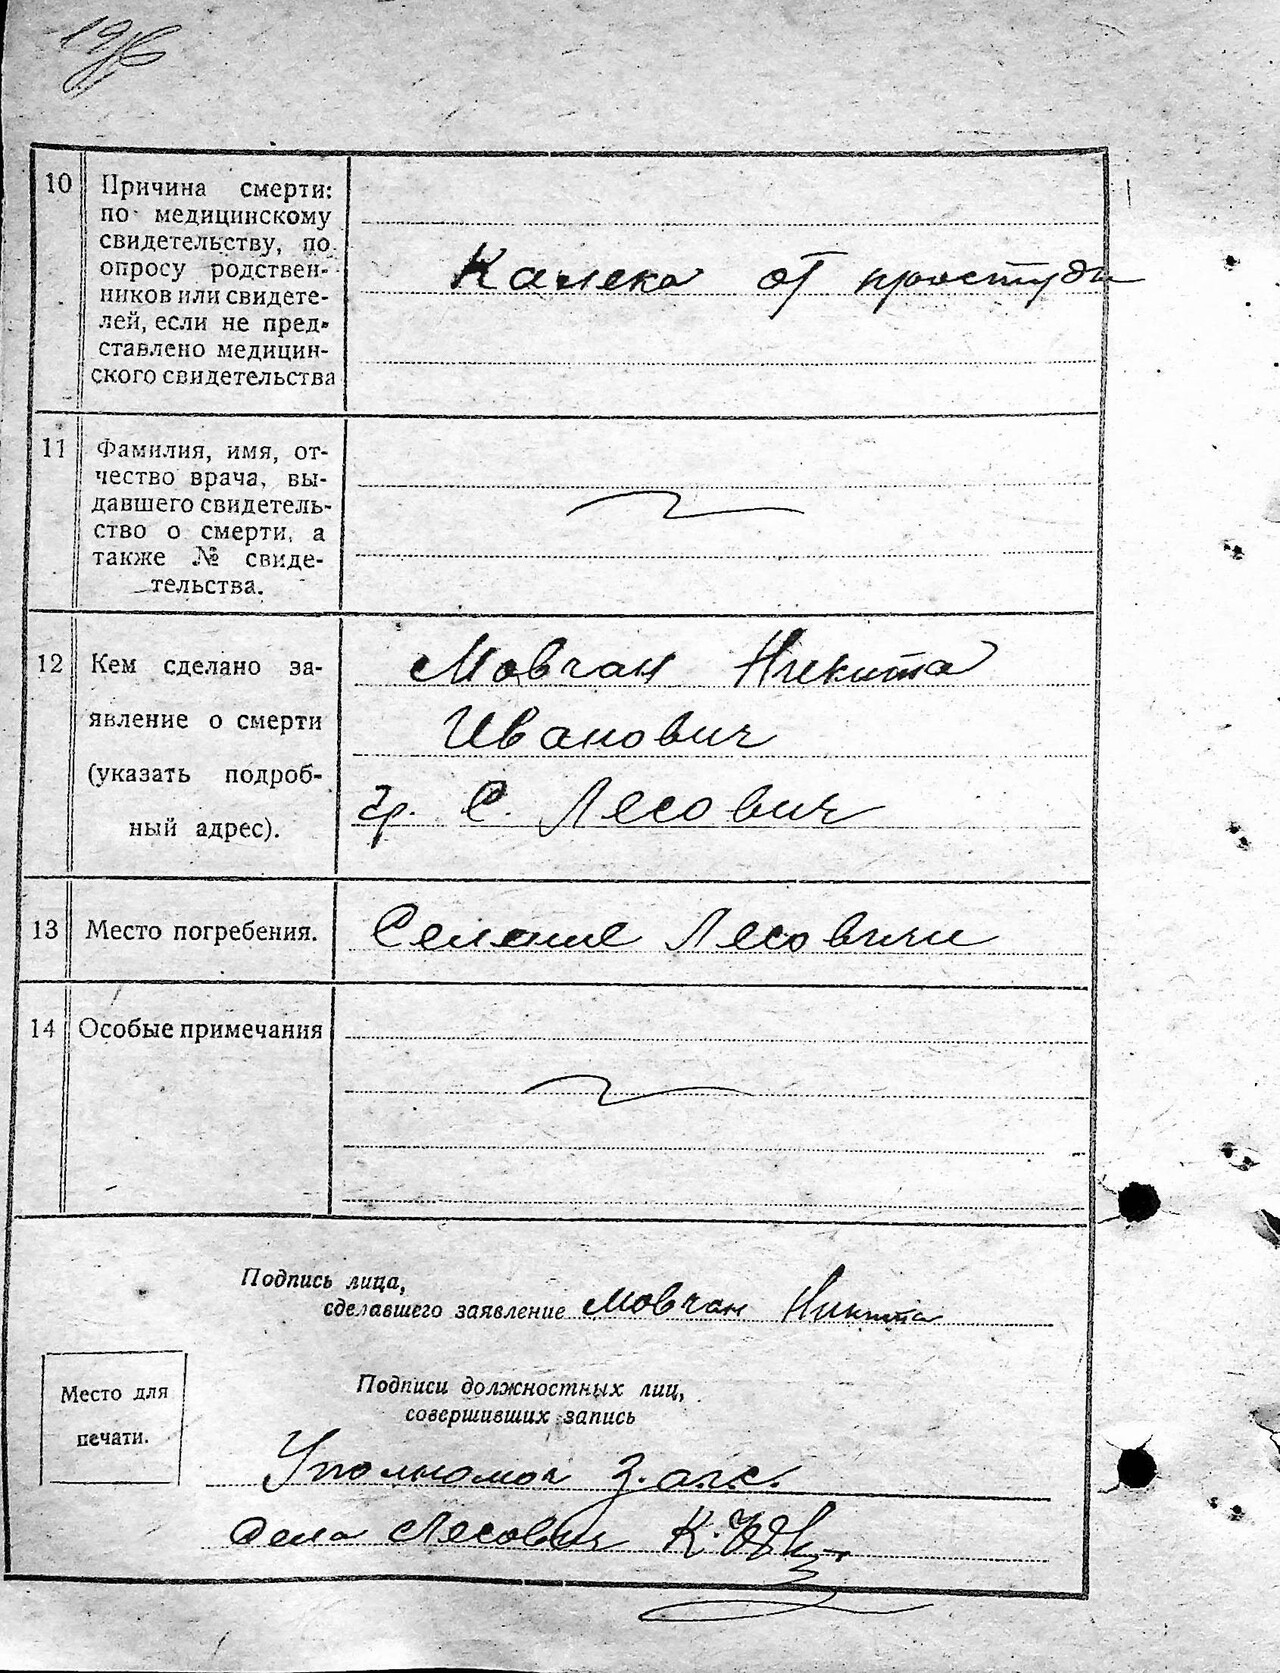 10 Причина смерти:
по медицинскому
свидетельству, по
опросу родствен-
ников или свидете-
лей, если не пред-
ставлено медицин-
ского свидетельства
Калека от простуды
11 Фамилия, имя, от-
чество врача, вы-
давшего свидетель-
ство о смерти, а
также № свиде-
тельства.
12 Кем сделано за-
явление о смерти
(указать подроб-
ный адрес).
Мовчан Никита
Иванович
гр. С. Лесович
13 Место погребения.
Селение Лесовичи
14 Особые примечания
Подпись лица,
сделавшего заявление Мовчан Никита
Место для
печати.
Подписи должностных лиц,
совершивших запись
Уполномоч загс.
села Лесович К.